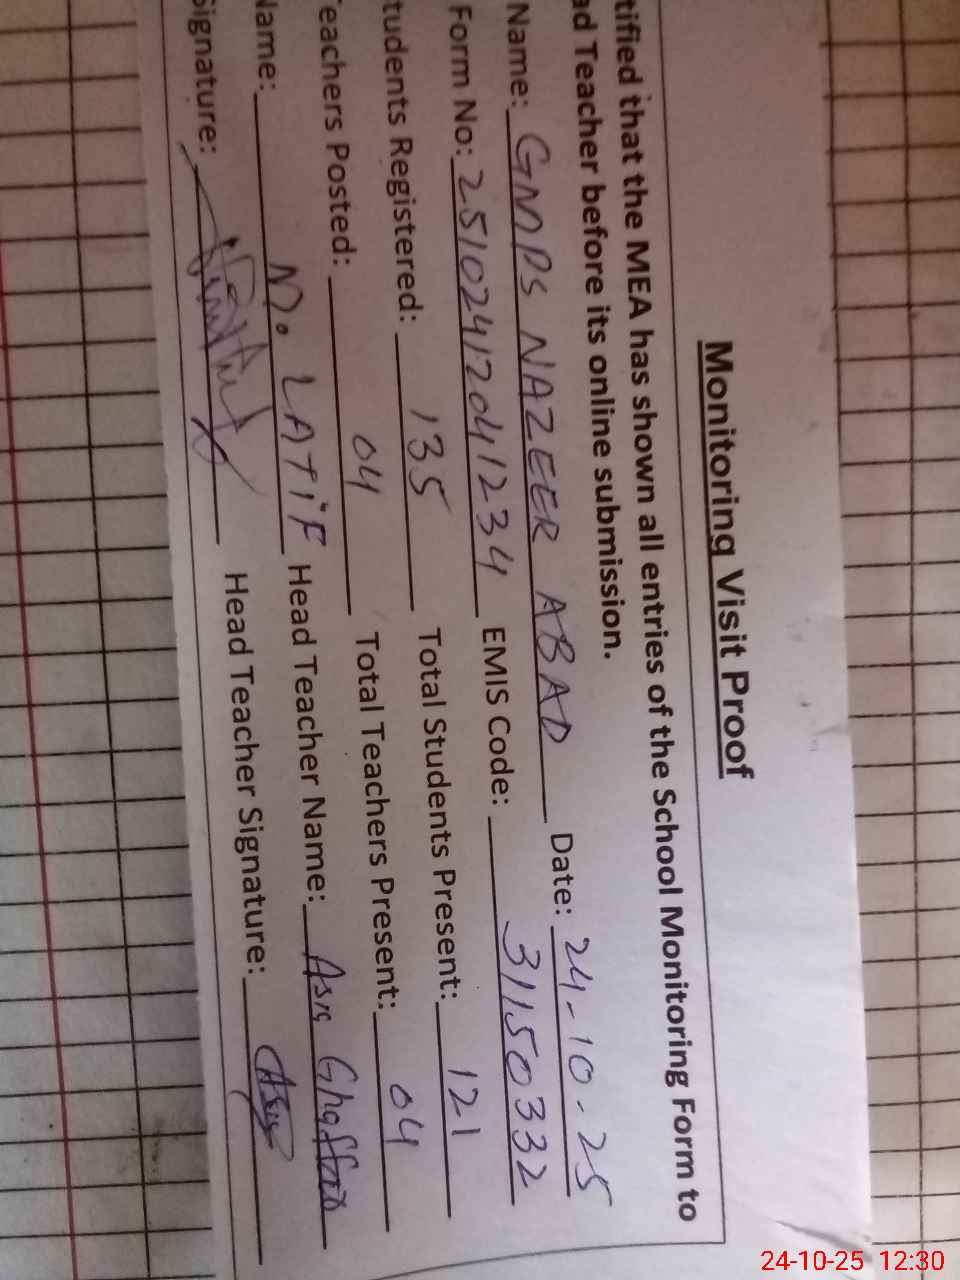 Monitoring Visit Proof
tified that the MEA has shown all entries of the School Monitoring Form to
ad Teacher before its online submission.
Name: GMPS NAZEER ABAD Date: 24-10-25
Form No: 25102412041234 EMIS Code: 31150332
tudents Registered: 135 Total Students Present: 121
eachers Posted: 04 Total Teachers Present: 04
Name: M. LATiF Head Teacher Name: Asia Ghaffar
Signature: Head Teacher Signature: Asia
24-10-25 12:30